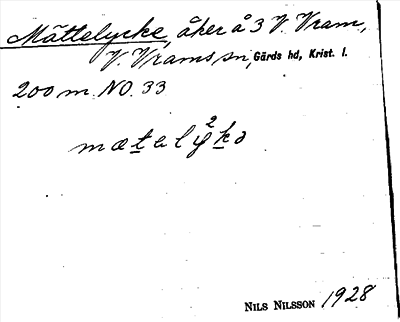 Mättelycke, åker å 3 V. Vram,
V. Vrams sn, Gärds hd, Krist. l.
200 m NO. 33
mætaly²kə
NILS NILSSON 1928